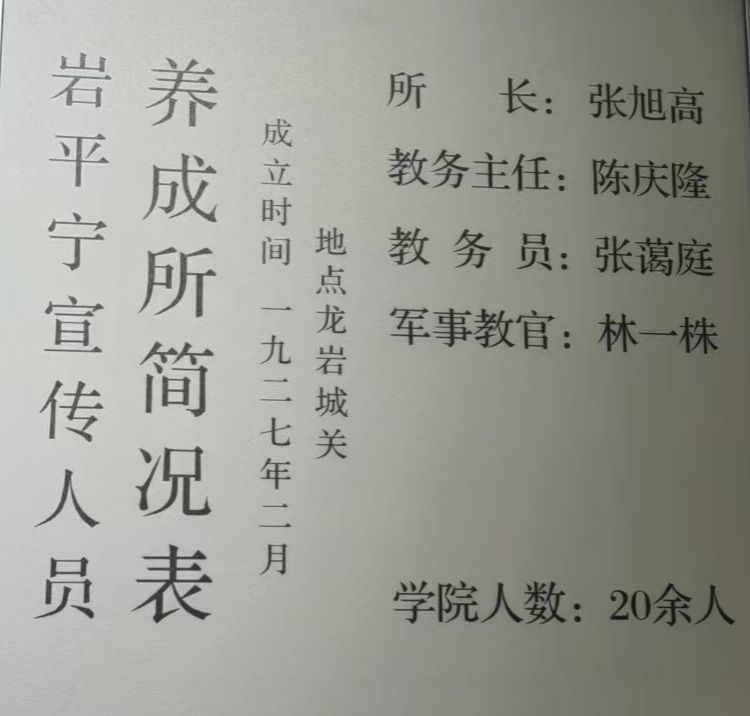 岩平宁宣传人员
养成所简况表
成立时间 一九二七年二月
地点龙岩城关
所 长：张旭高
教务主任：陈庆隆
教务员：张蔼庭
军事教官：林一株
学院人数：20余人